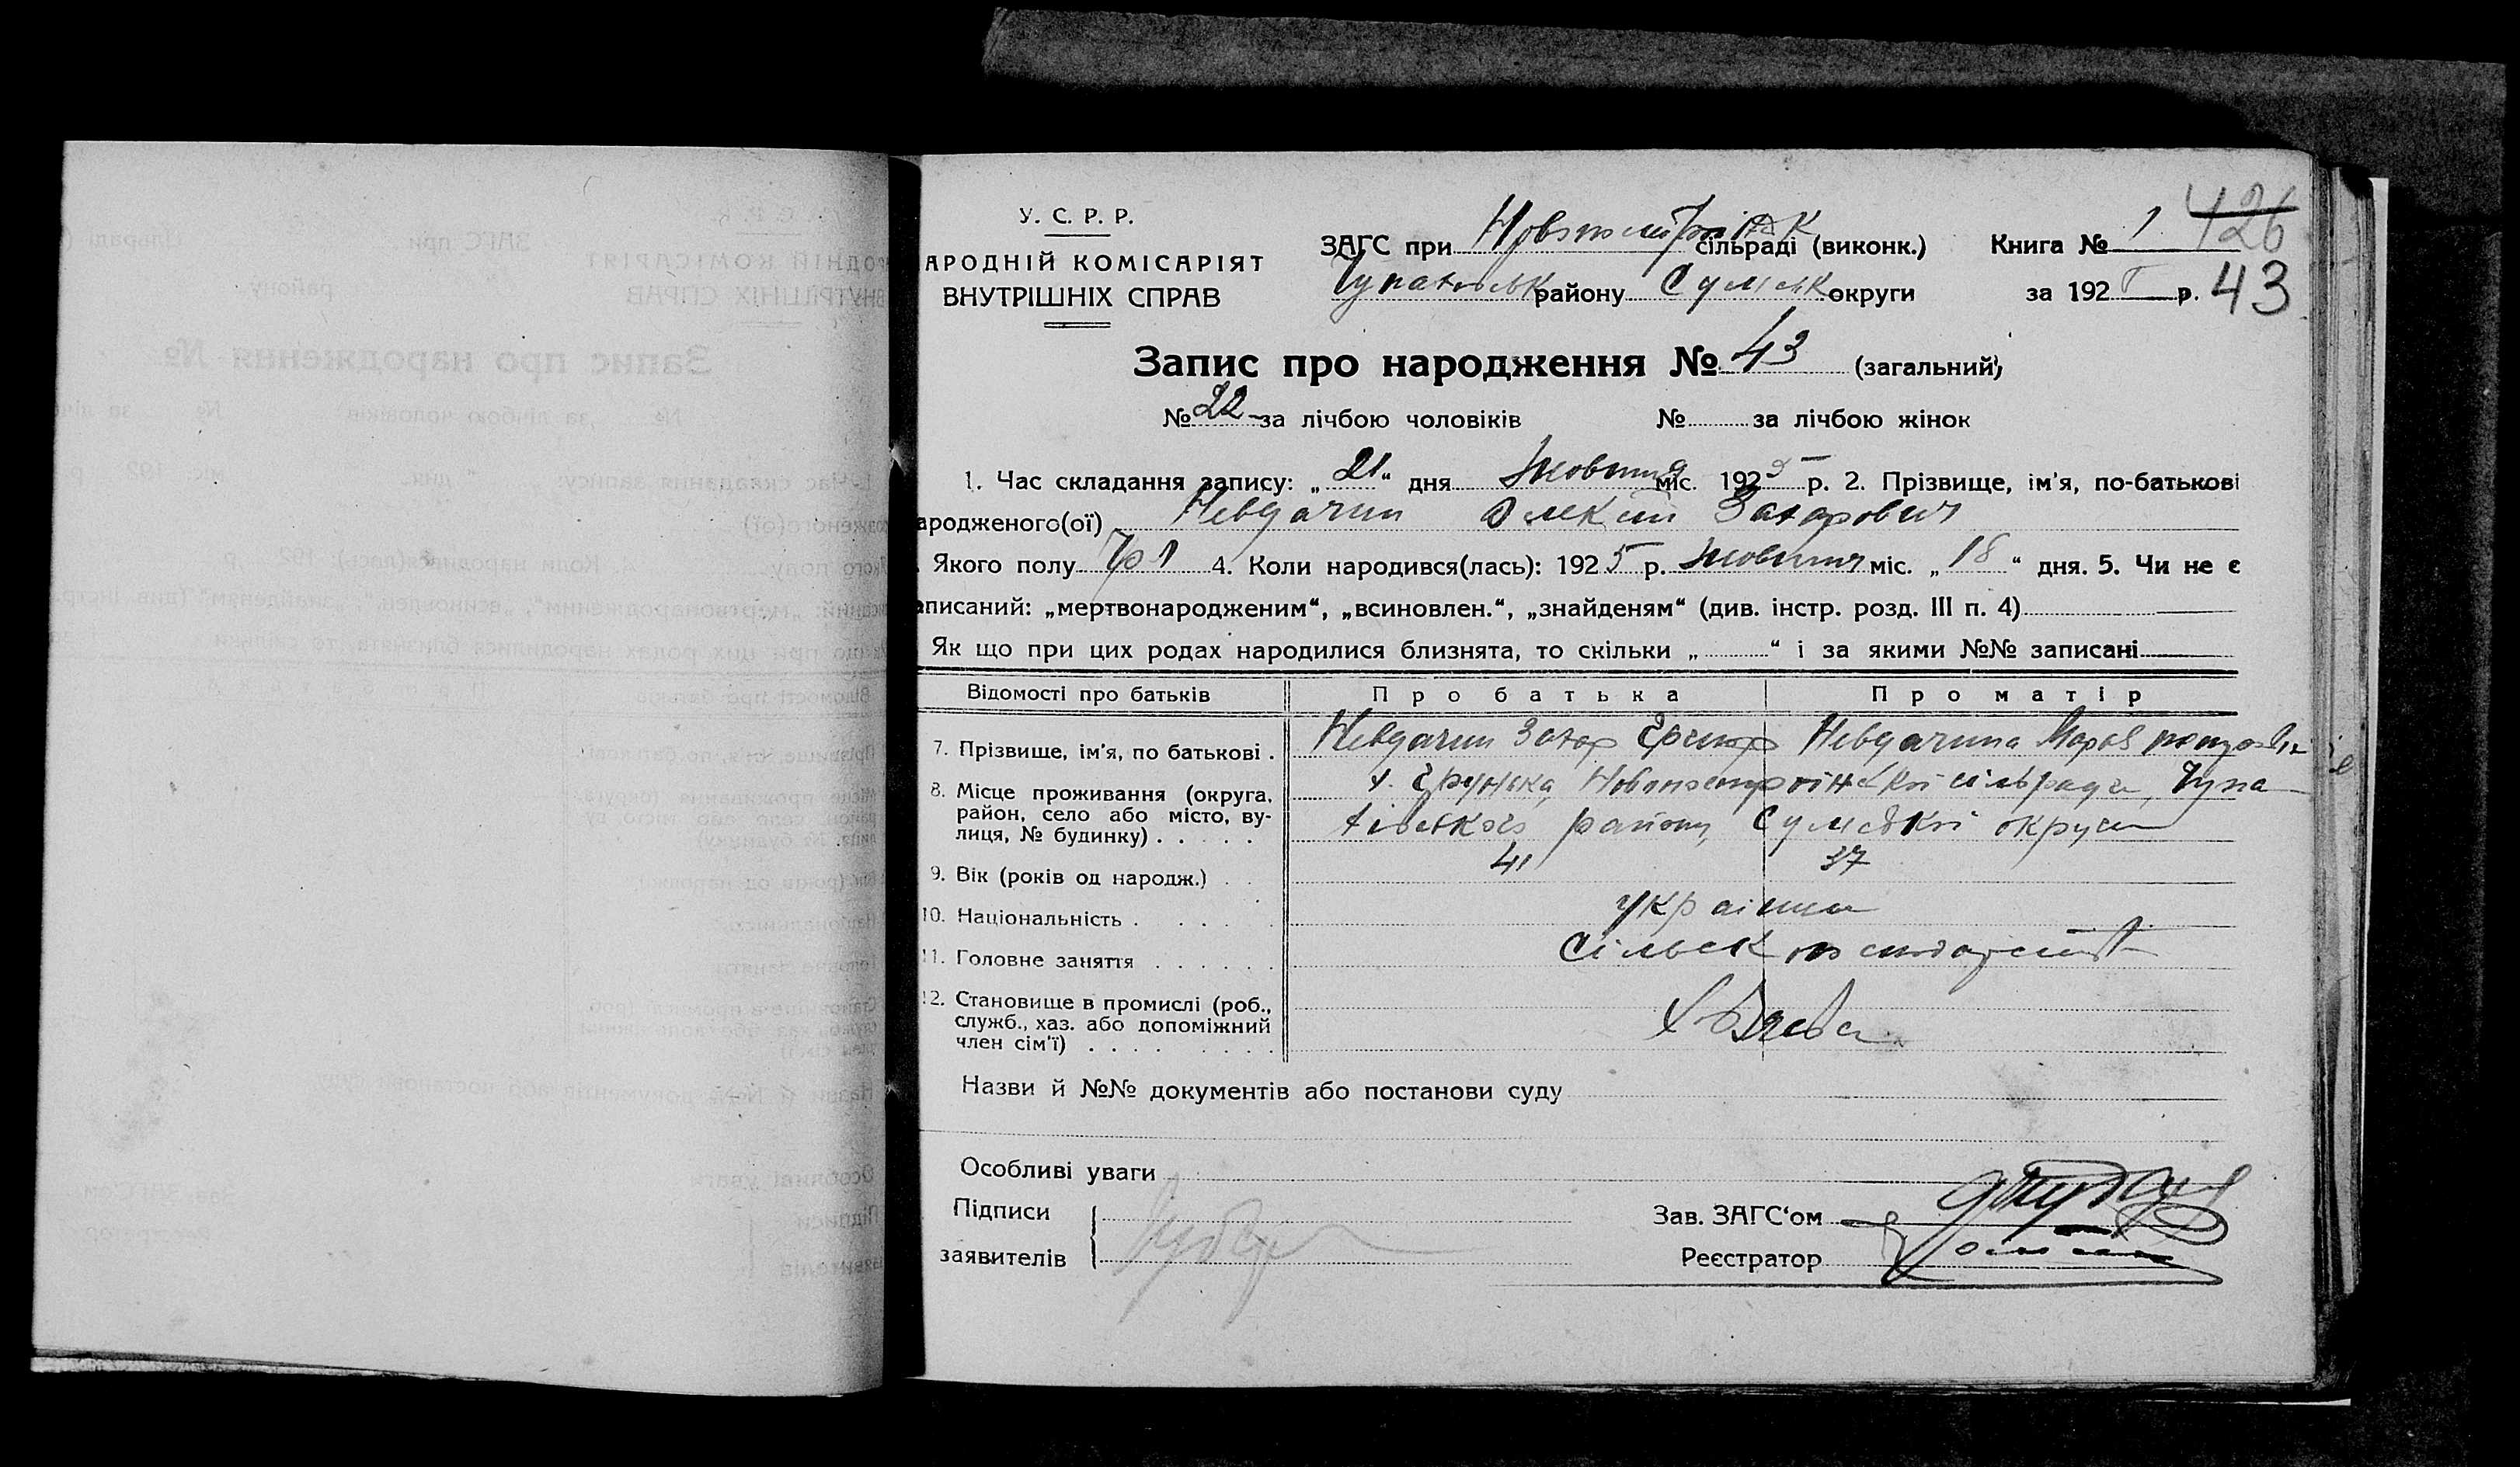 У. С. Р. Р.
АРОДНІЙ КОМІСАРІЯТ
ВНУТРІШНІХ СПРАВ
ЗАГС при сільраді (виконк.) Книга № 1 426
району Сумськ округи за 192 5 р. 43
Запис про народження № 43 (загальний)
№ 22 за лічбою чоловіків № за лічбою жінок
1. Час складання запису: „21“ дня Жовтня міс. 1925 р. 2. Прізвище, ім'я, по-батькові
ародженого(ої) Невдачин Олексій Захарович
Якого полу 4. Коли народився(лась): 1925 р. жовтня міс. „18“ дня. 5. Чи не є
аписаний: „мертвонародженим“, „всиновлен.“, „знайденям“ (див. інстр. розд. III п. 4)
Як що при цих родах народилися близнята, то скільки „ “ і за якими №№ записані
Відомості про батьків Про батька Про матір
7. Прізвище, ім'я, по батькові . Невдачин Захар Невдачина Мария
8. Місце проживання (округа, район, село або місто, вулиця, № будинку) . . . . . х. Грунька, сільради, Чупа
хівського району Сумської округи
9. Вік (років од народж.) . . 41 37
10. Національність . . . . . українці
11. Головне заняття . . . . . . Сільск господарство
12. Становище в промислі (роб., служб., хаз. або допоміжний член сім'ї) . . . . . . . . .
Назви й №№ документів або постанови суду
Особливі уваги
Підписи
заявителів
Зав. ЗАГС'ом
Реєстратор